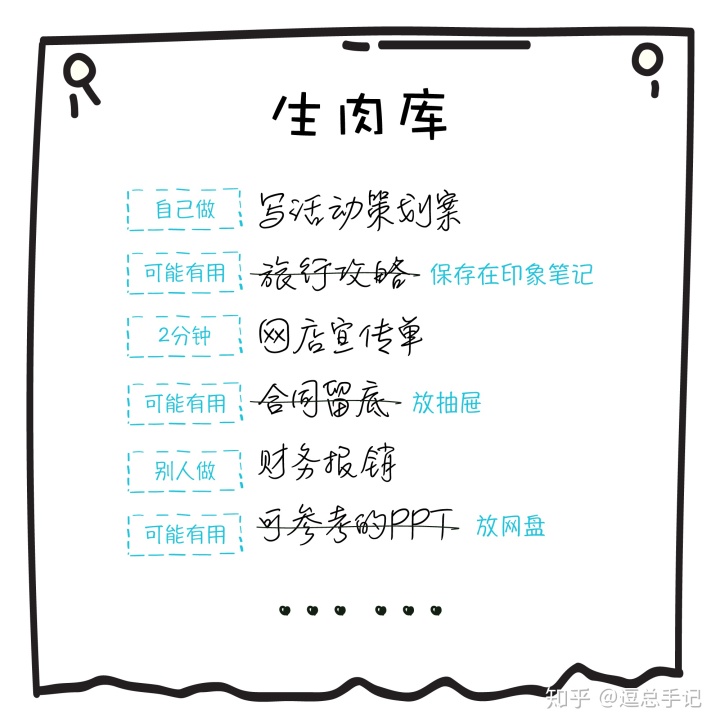 生肉库
自己做 写活动策划案
可能有用 旅行攻略 保存在印象笔记
2分钟 网店宣传单
可能有用 合同留底 放抽屉
别人做 财务报销
可能有用 可参考的PPT 放网盘
知乎 @逗总手记